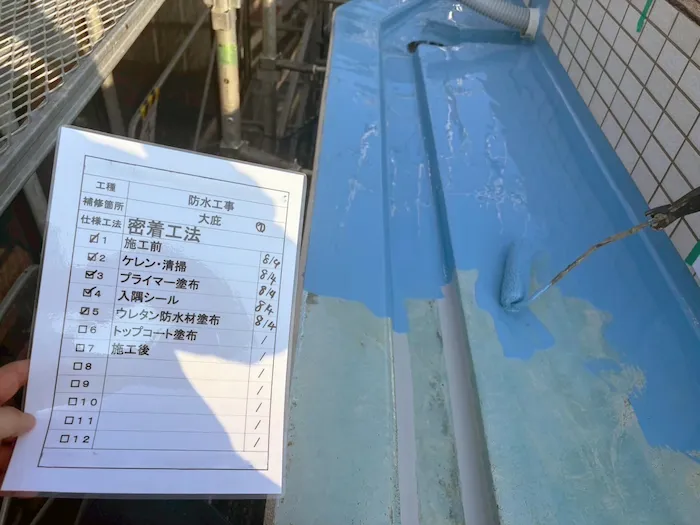 工種 防水工事
補修箇所 大庇 ⑦
仕様工法 密着工法
☑1 施工前 8/4
☑2 ケレン・清掃 8/4
☑3 プライマー塗布 8/4
☑4 入隅シール 8/4
☑5 ウレタン防水材塗布 8/4
□6 トップコート塗布 /
□7 施工後 /
□8 /
□9 /
□10 /
□11 /
□12 /